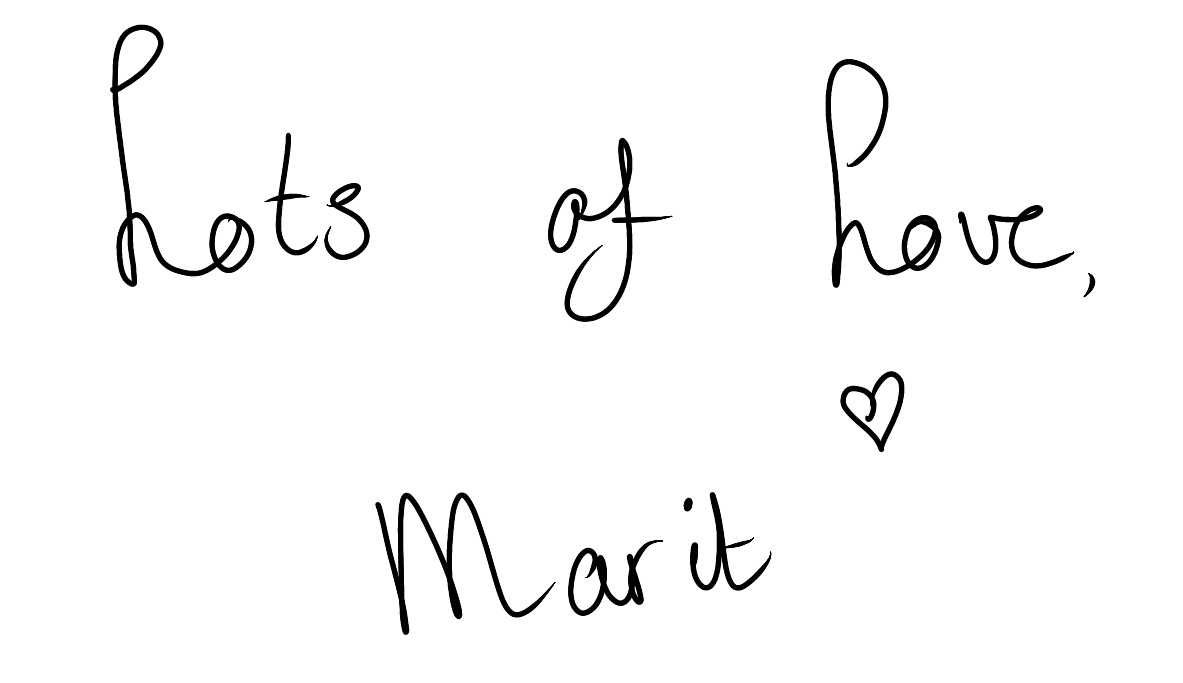 Lots of Love,
♡
Marit